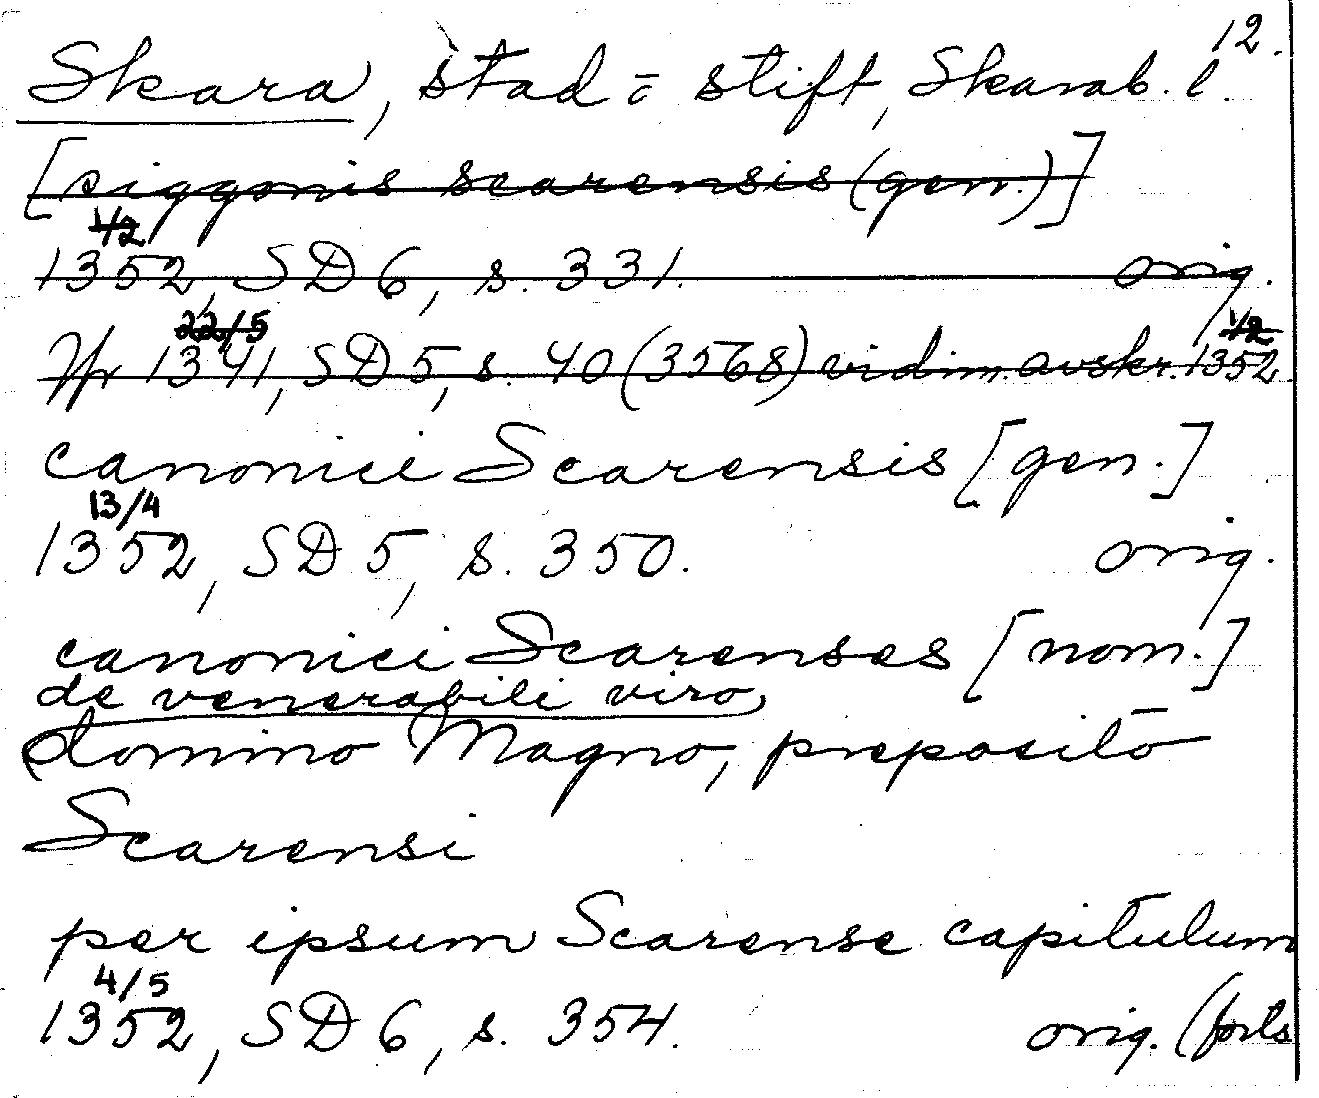 12.
Skara, stad = stift, Skarab. l.
[siggonis scarensis (gen.)]
1/2
1352, SD 6, s. 331. orig.
22/5 1/2
Jfr 1341, SD 5, s. 40 (3568) vidim. avskr. 1352.
canonici Scarensis [gen.]
13/4
1352, SD 5, s. 350. orig.
canonici Scarenses [nom.]
de venerabili viro,
domino Magno, preposito
Scarensi
per ipsum Scarense capitulum
4/5
1352, SD 6, s. 354. orig. (forts